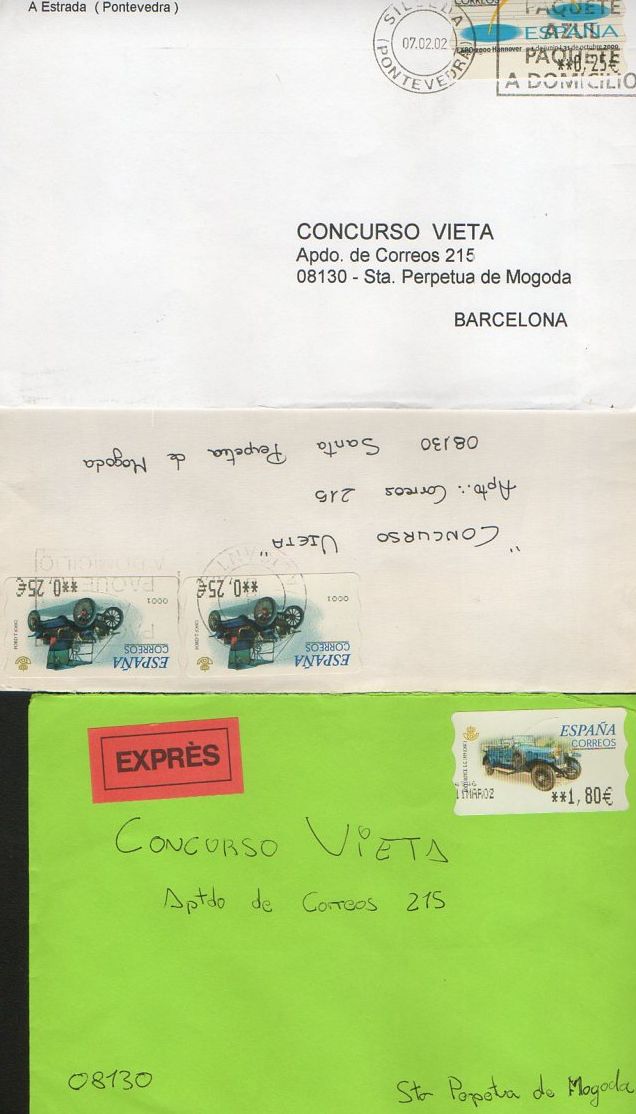 A Estrada ( Pontevedra )
SILLEDA
07.02.02
(PONTEVEDRA)
CORREOS
PAQUETE
AZUL
PAQUETE
A DOMICILIO
ESPAÑA
EXPO2000 Hannover 1 de junio - 31 de octubre 2000
**0,25€
CONCURSO VIETA
Apdo. de Correos 215
08130 - Sta. Perpetua de Mogoda
BARCELONA
"CONCURSO VIETA"
Apto.: Correos 215
08130 Santa Perpetua de Mogoda
ESPAÑA
CORREOS
0001
**0,25€
ESPAÑA
CORREOS
0001
**0,25€
EXPRÈS
ESPAÑA
CORREOS
11MAR02
**1,80€
CONCURSO VIETA
Aptdo de Correos 215
08130
Sta Perpetua de Mogoda